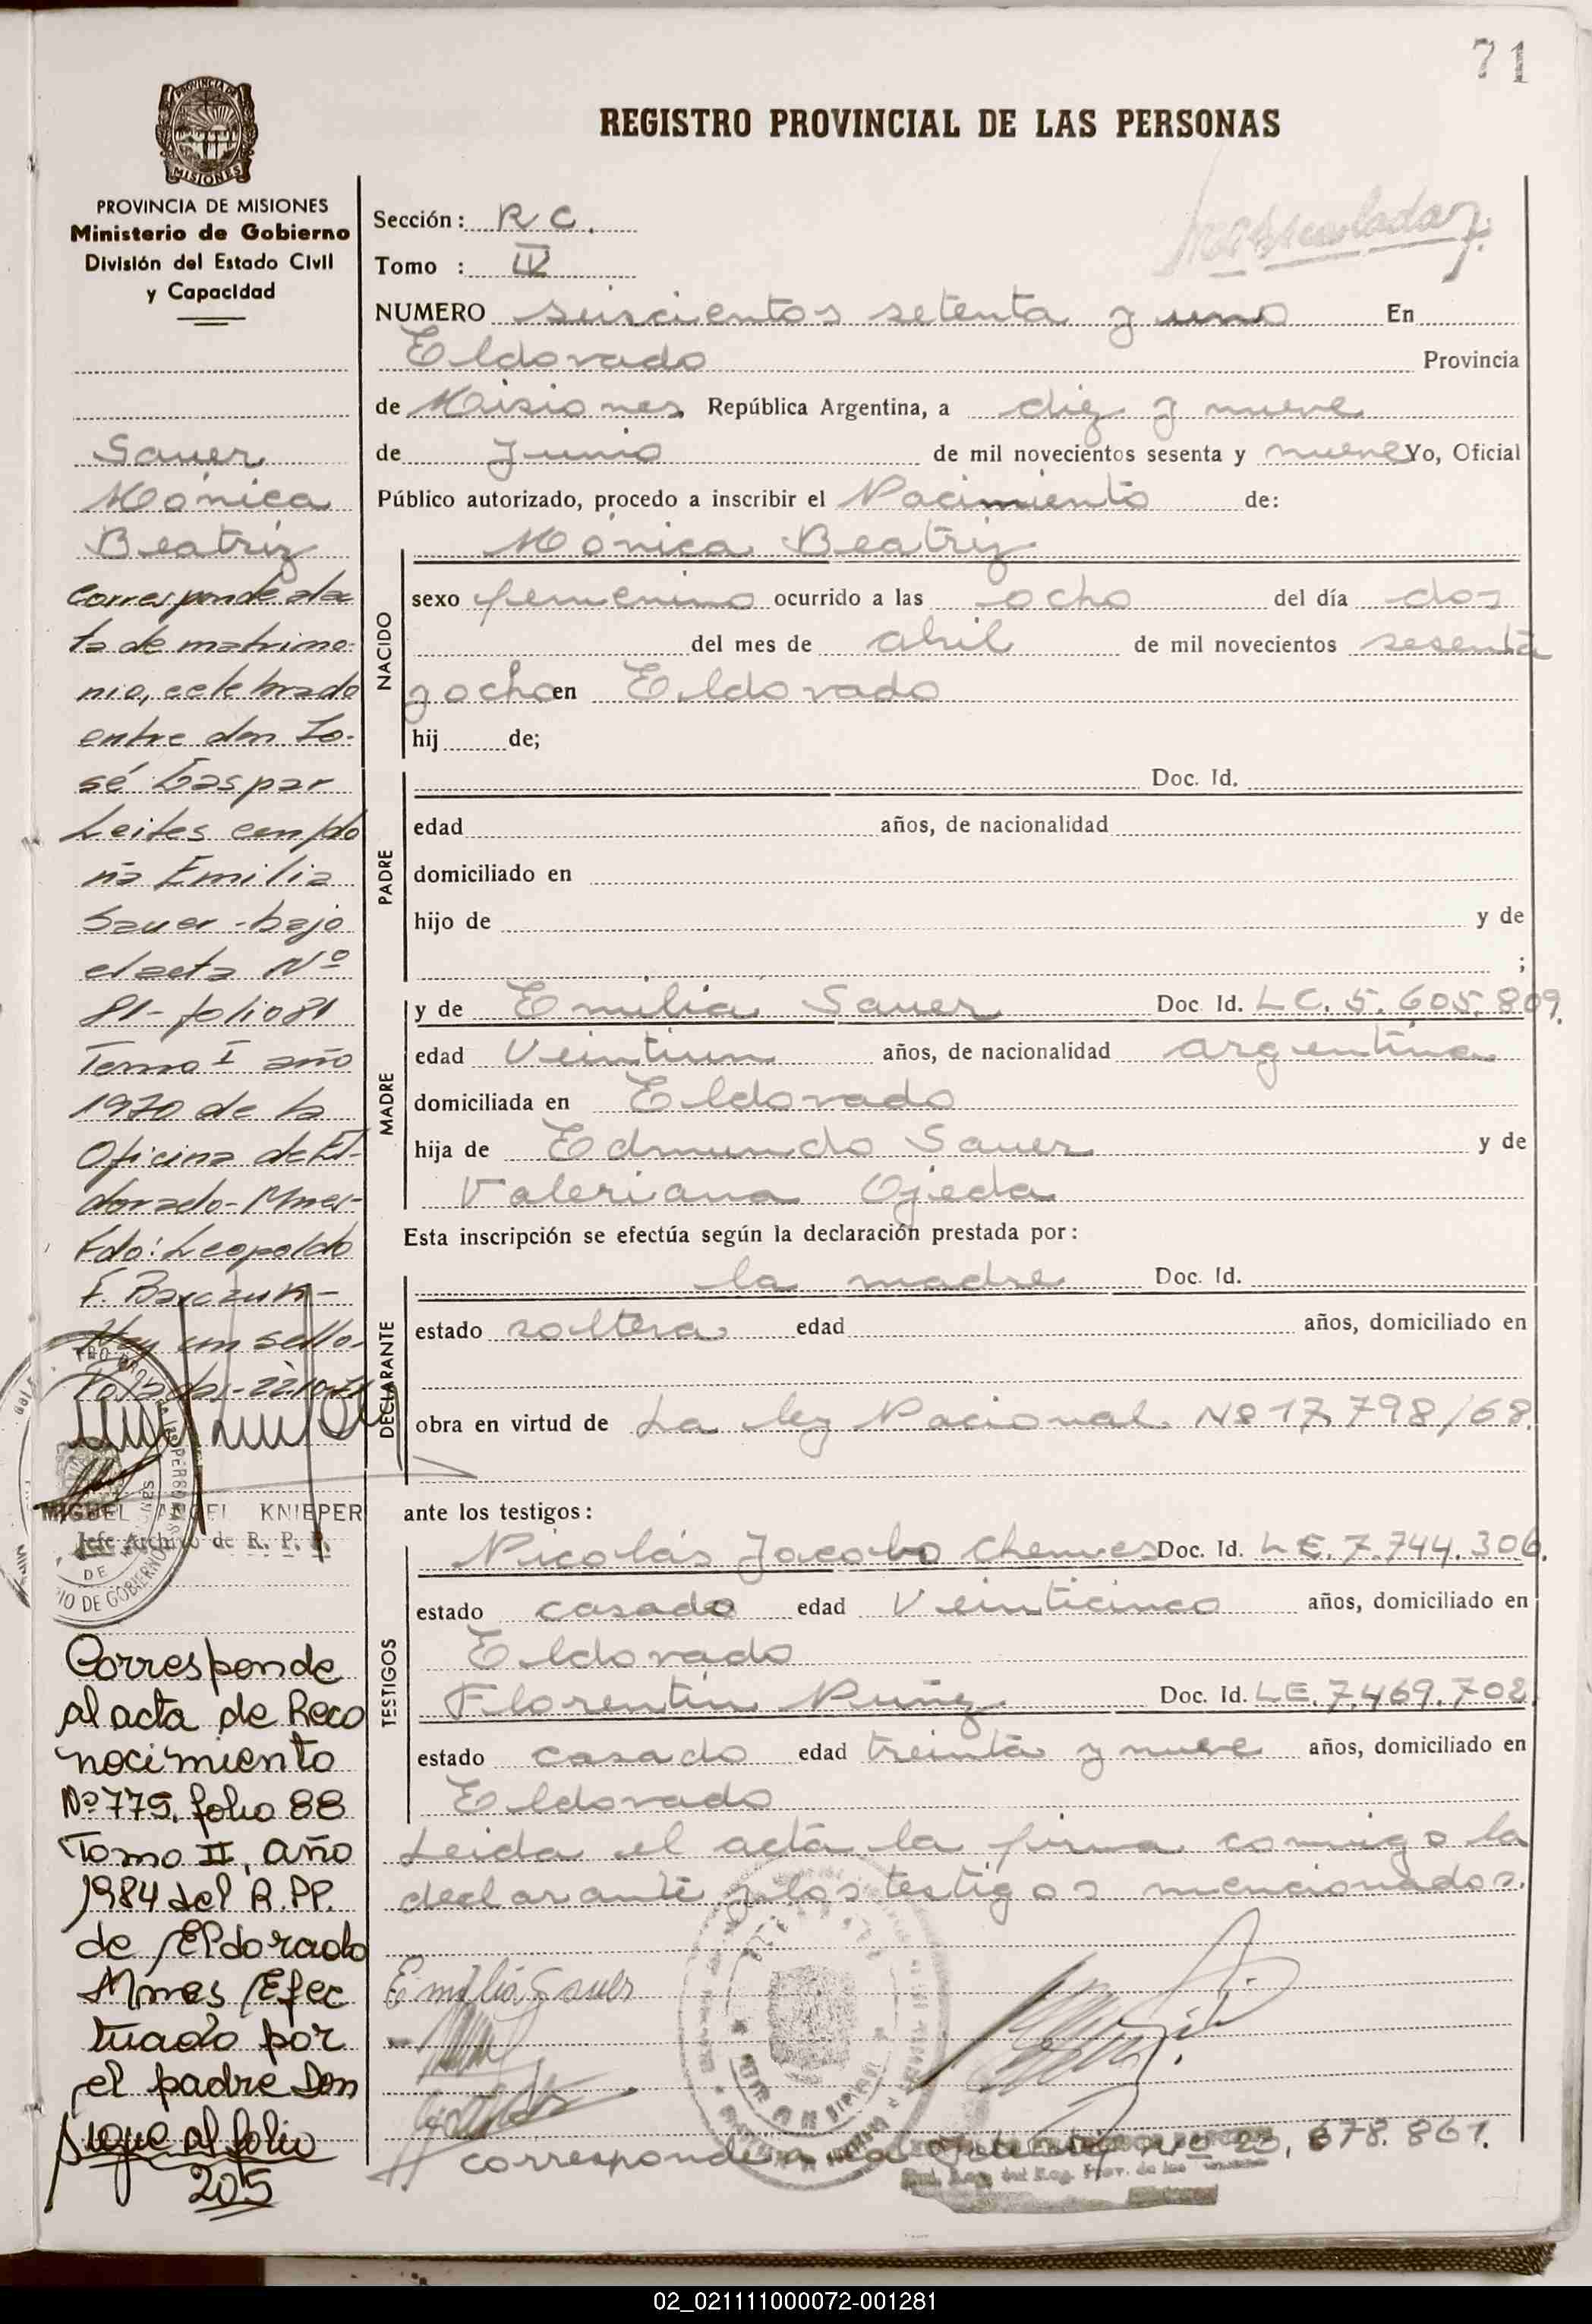 71
REGISTRO PROVINCIAL DE LAS PERSONAS
PROVINCIA DE MISIONES
Ministerio de Gobierno
División del Estado Civil
y Capacidad
Sauer
Mónica
Beatriz
corresponde al ac
ta de matrimo-
nio, celebrado
entre don Jo-
sé Gaspar
Leites con do
ña Emilia
Sauer - bajo
el acta Nº
81 - folio 81
Tomo I año
1970 de la
Oficina de El-
dorado - Mnes-
Fdo: Leopoldo
F.
Hay un sello-
Posadas - 22
MIGUEL ANGEL KNIEPER
Jefe Archivo de R. P. P.
Corresponde
al acta de Reco
nocimiento
Nº 775, folio 88
Tomo II, año
1984 del R.PP.
de Eldorado
Mnes Efec
tuado por
el padre Don
Sigue al folio
205
Sección: R C.
Tomo : IV
NUMERO seiscientos setenta y uno En
Eldorado Provincia
de Misiones República Argentina, a diez y nueve
de Junio de mil novecientos sesenta y nueve Yo, Oficial
Público autorizado, procedo a inscribir el Nacimiento de:
NACIDO
Mónica Beatriz
sexo femenino ocurrido a las ocho del día dos
del mes de abril de mil novecientos sesenta
y ocho en Eldorado
hij de;
PADRE
Doc. Id.
edad años, de nacionalidad
domiciliado en
hijo de y de
;
MADRE
y de Emilia Sauer Doc. Id. L C. 5. 605. 809.
edad Veintiun años, de nacionalidad argentina
domiciliada en Eldorado
hija de Edmundo Sauer y de
Valeriana Ojeda
Esta inscripción se efectúa según la declaración prestada por:
DECLARANTE
la madre Doc. Id.
estado soltera edad años, domiciliado en
obra en virtud de La ley Nacional Nº 17.798/68.
ante los testigos:
TESTIGOS
Nicolás Jacobo Chemes Doc. Id. L E. 7.744.306.
estado casado edad Veinticinco años, domiciliado en
Eldorado
Florentín Nuñez Doc. Id. L E. 7.469.702.
estado casado edad treinta y nueve años, domiciliado en
Eldorado
Leida el acta la firma conmigo la
declarante y los testigos mencionados.
Emilia Sauer
corresponde a la nº 20, 678. 861.
02_021111000072-001281